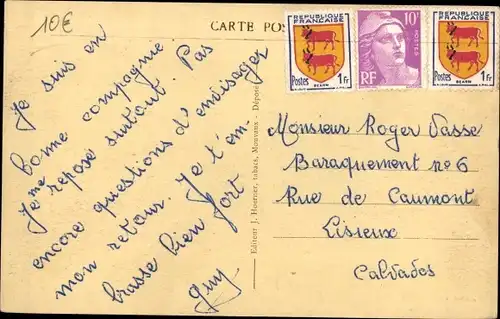 10€
CARTE POS
RÉPUBLIQUE FRANÇAISE
Postes 1Fr
BEARN
10F
POSTES
RF
RÉPUBLIQUE FRANÇAISE
Postes 1Fr
BEARN
Je suis en
bonne compagnie
Je me repose surtout. Pas
encore questions d'envisager
mon retour. Je t'em-
brasse bien fort
Guy
Editeur J. Hoernier, tabacs, Mouvaux - Déposé
Monsieur Roger Vasse
Baraquement n°6
Rue de Caumont
Lisieux
Calvados